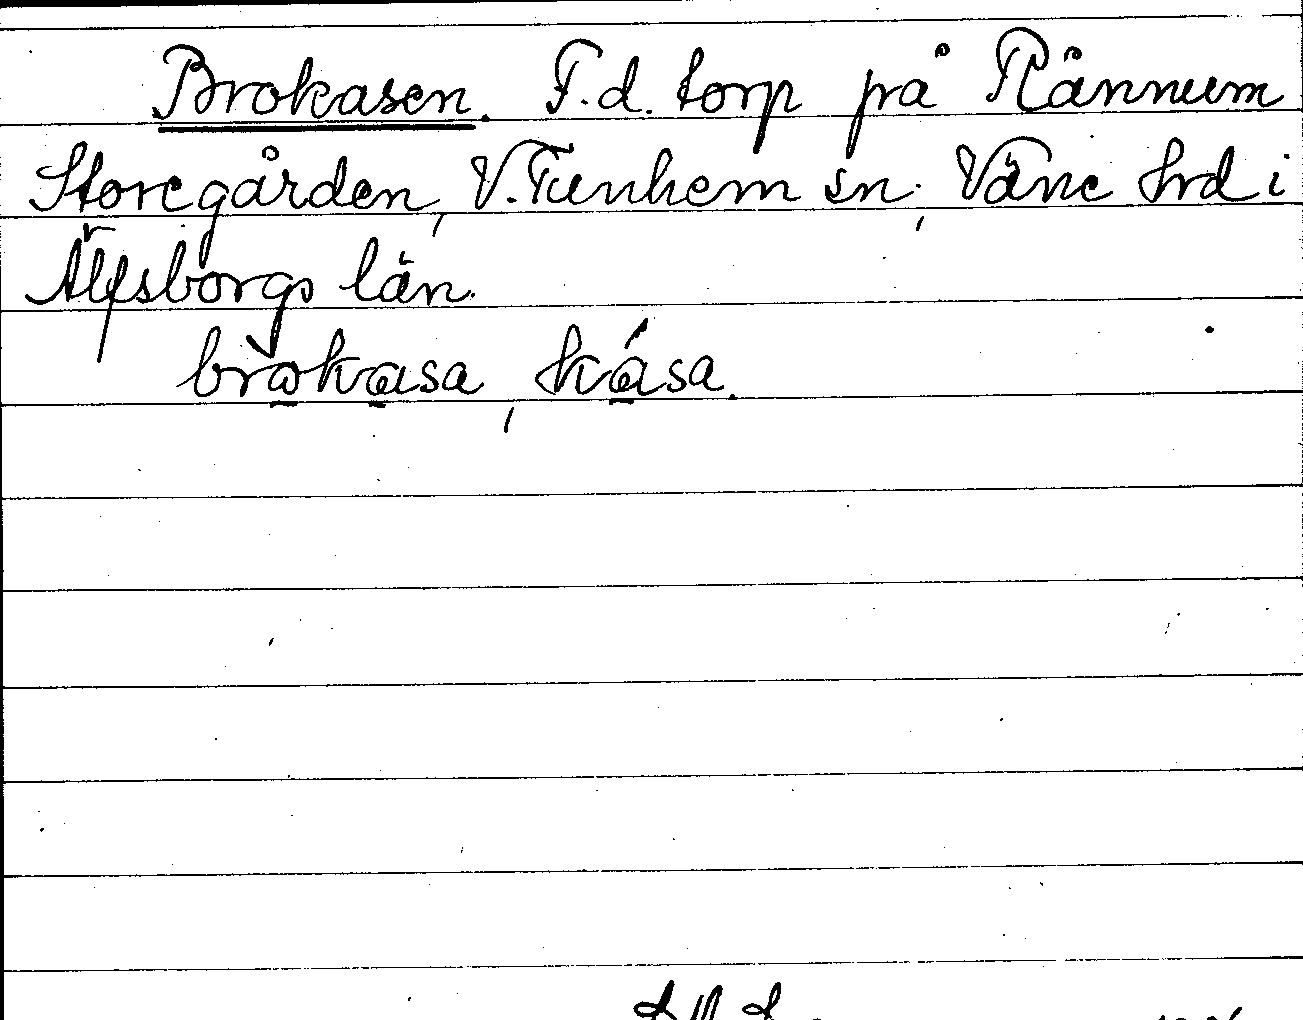 Brokasen. F.d. torp på Rånnum
Storegården, V. Tunhem sn; Väne hrd i
Älfsborgs län.
brokasa, kása.